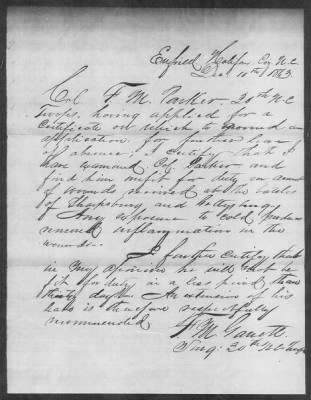 Enfield Halifax Co, N.C
Dec 10th 1863.
Col F. M. Parker 30th N.C
Troops, having applied for a
Certificate on which to ground an
application for further leave
of absence, I certify that I
have examined Col Parker and
find him unfit for duty on account
of wounds received at the battles
of Sharpsburg and Gettysburg.
Any exposure to cold produces
renewed inflammation in the
wounds.
I further certify that
in my opinion he will not be
fit for duty in a less period than
thirty days. An extension of his
leave is therefore respectfully
recommended
F. M. Garrett
Surg: 30th N.C Troops